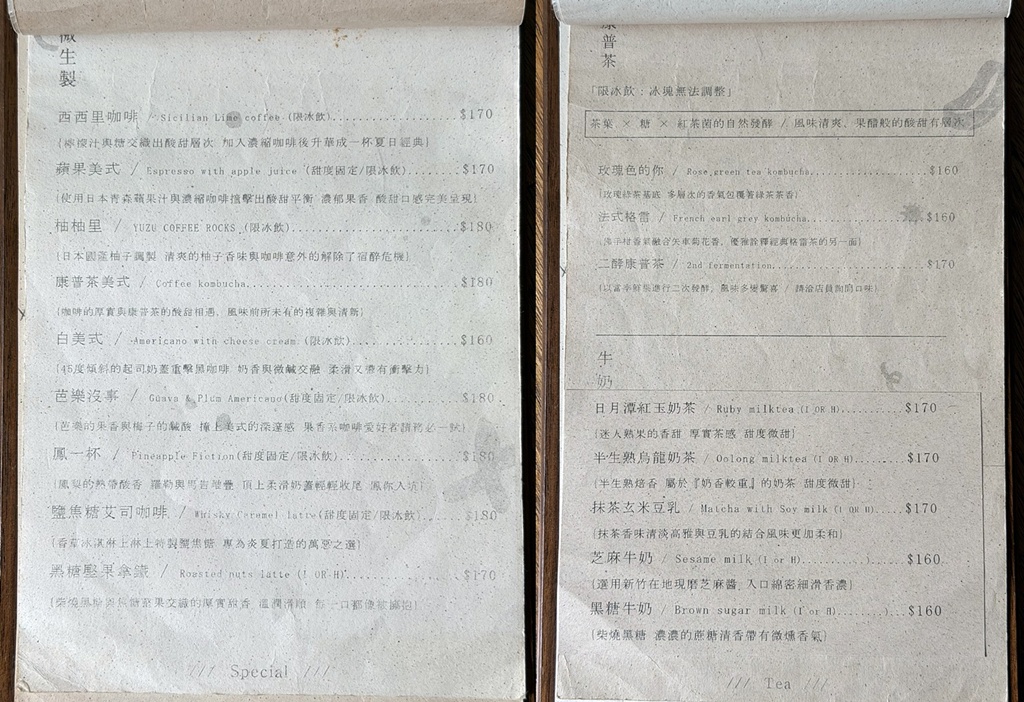 微生製
西西里咖啡 / Sicilian Lime coffee (限冰飲)..................$170
(檸檬汁與糖交織出酸甜層次 加入濃縮咖啡後升華成一杯夏日經典)
蘋果美式 / Espresso with apple juice (甜度固定/限冰飲)..........$170
(使用日本青森蘋果汁與濃縮咖啡撞擊出酸甜平衡 濃郁果香 酸甜口感完美呈現)
柚柚里 / YUZU COFFEE ROCKS (限冰飲)..........................$180
(日本國產柚子調製 清爽的柚子香味與咖啡意外的解除了宿醉危機)
康普茶美式 / Coffee kombucha................................$180
(咖啡的厚實與康普茶的酸甜相遇, 風味前所未有的複雜與清新)
白美式 / Americano with cheese cream (限冰飲)................$160
(45度傾斜的起司奶蓋重擊黑咖啡 奶香與微鹹交融 柔滑又帶有衝擊力)
芭樂沒事 / Guava & Plum Americano(甜度固定/限冰飲)............$180
(芭樂的果香與梅子的鹹酸 撞上美式的深邃感 果香系咖啡愛好者請務必一試)
鳳一杯 / Pineapple Fiction(甜度固定/限冰飲)..................$180
(鳳梨的熱帶酸香 羅勒與馬告堆疊 頂上柔滑奶蓋輕輕收尾 鳳你入坑)
鹽焦糖艾司咖啡 / Whisky Caramel latte(甜度固定/限冰飲)........$180
(香草冰淇淋上淋上特製蟹焦糖 專為炎夏打造的萬惡之選)
黑糖堅果拿鐵 / Roasted nuts latte (I OR H)..................$170
/// Special ///
康普茶
「限冰飲:冰塊無法調整」
茶葉 × 糖 × 紅茶菌的自然發酵 / 風味清爽、果醋般的酸甜有層次
玫瑰色的你 / Rose green tea kombucha.....................$160
(玫瑰綠茶基底 多層次的香氣包覆著綠茶茶香)
法式格雷 / French earl grey kombucha.....................$160
(佛手柑香氣融合矢車菊花香, 優雅詮釋經典格雷茶的另一面)
二酵康普茶 / 2nd fermentation............................$170
(以當季鮮果進行二次發酵, 風味多變驚喜 / 請洽店員詢問口味)
牛奶
日月潭紅玉奶茶 / Ruby milktea (I OR H)..........$170
(迷人熟果的香甜 厚實茶感 甜度微甜)
半生熟烏龍奶茶 / Oolong milktea (I OR H)........$170
(半生熟焙香 屬於『奶香較重』的奶茶 甜度微甜)
抹茶玄米豆乳 / Matcha with Soy milk (I OR H).....$170
(抹茶香味清淡高雅與豆乳的結合風味更加柔和)
芝麻牛奶 / Sesame milk (I or H)................$160
(選用新竹在地現磨芝麻醬, 入口綿密細滑香濃)
黑糖牛奶 / Brown sugar milk (I or H)............$160
(柴燒黑糖 濃濃的蔗糖清香帶有微燻香氣)
/// Tea ///